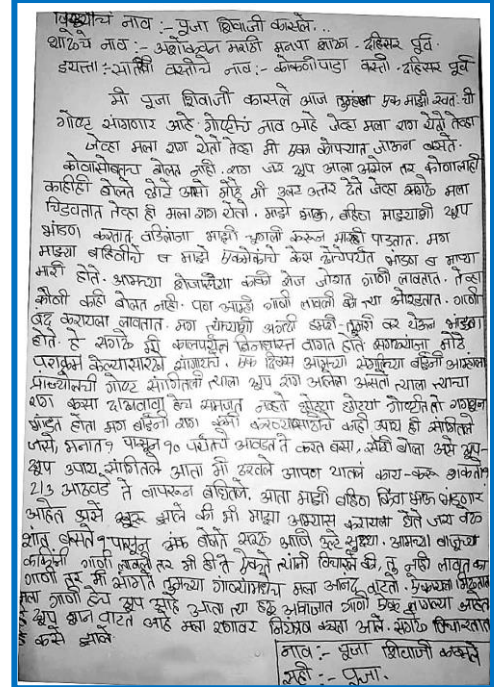 विद्यार्थ्याचं नाव :- पूजा शिवाजी कासले...
शाळेचे नाव :- अशोकवन मराठी मनपा शाळा - दहिसर पूर्व.
इयत्ता :- सातवी वस्तीचे नाव :- कोकणीपाडा वस्ती - दहिसर पूर्व
मी पूजा शिवाजी कासले आज तुम्हाला एक माझी स्वतःची
गोष्ट सांगणार आहे. गोष्टीचं नाव आहे जेव्हा मला राग येतो तेव्हा
जेव्हा मला राग येतो तेव्हा मी एका कोपऱ्यात जाऊन बसते.
कोणासोबतच बोलत नाही. राग जर खूप आला असेल तर कोणालाही
काहीही बोलते छोटे असो मोठे मी उलट उत्तर देते जेव्हा सगळे मला
चिडवतात तेव्हा ही मला राग येतो. माझे भाऊ, बहिण माझ्याशी खूप
भांडण करतात वडिलांना माझी चुगली करून मारही पाडतात. मग
माझ्या बहिणीचे व माझे एकमेकांचे केस भांडण व मारा
मारी होते. आमच्या शेजारच्या काकी रोज जोरात गाणी लावतात. तेव्हा
कोणी काही बोलत नाही. पण आम्ही गाणी लावली की त्या ओरडतात. गाणी
बंद करायला लावतात. मग त्यांच्याशी अगदी हमरी-तुमरी वर येऊन भांडण
होते. हे सगळे मी वागत होते सगळ्यांना मोठे
पराक्रम केल्यासारखे सांगायचे. एक दिवस आमच्या ताईंनी आम्हाला
गोष्ट सांगितली त्याला खूप राग आलेला असतो त्याला त्याचा
राग कसा दाखवावा हेच समजत नव्हते छोट्या छोट्या गोष्टीत तो रागावून
भांडत होता मग ताईंनी राग कमी करण्यासाठीचे काही उपाय ही सांगितले
जसे, मनात १ पासून १० पर्यंतचे आवडत ते करत बसा, बोला असे खूप-
खूप उपाय सांगितले आता मी ठरवले आपण यातलं काय-करू शकतो
2/3 आठवडे ते वापरून बघितले. आता माझी बहिण किंवा भाऊ भांडणार
आहेत असे सुरू झाले की मी माझा अभ्यास करायला घेते जरा वेळ
शांत बसते १ पासून अंक बोलते सरळ आणि उलट सुद्धा. आमच्या बाजूच्या
काकींनी गाणी लावली तर मी ही ते ऐकते त्यांनी विचारले की, तू नाही लावत का
गाणी तर मी सांगते तुमच्या गाण्यामध्येच मला आनंद वाटतो.
मला गाणी हेच खूप आहे आता त्या हळू आवाजात गाणी लागल्या आहेत
खूप छान वाटत आहे मला रागावर नियंत्रण करता आले. सगळे विचारतात
हे कसे झाले.
नाव :- पूजा शिवाजी कासले
सही :- पूजा.